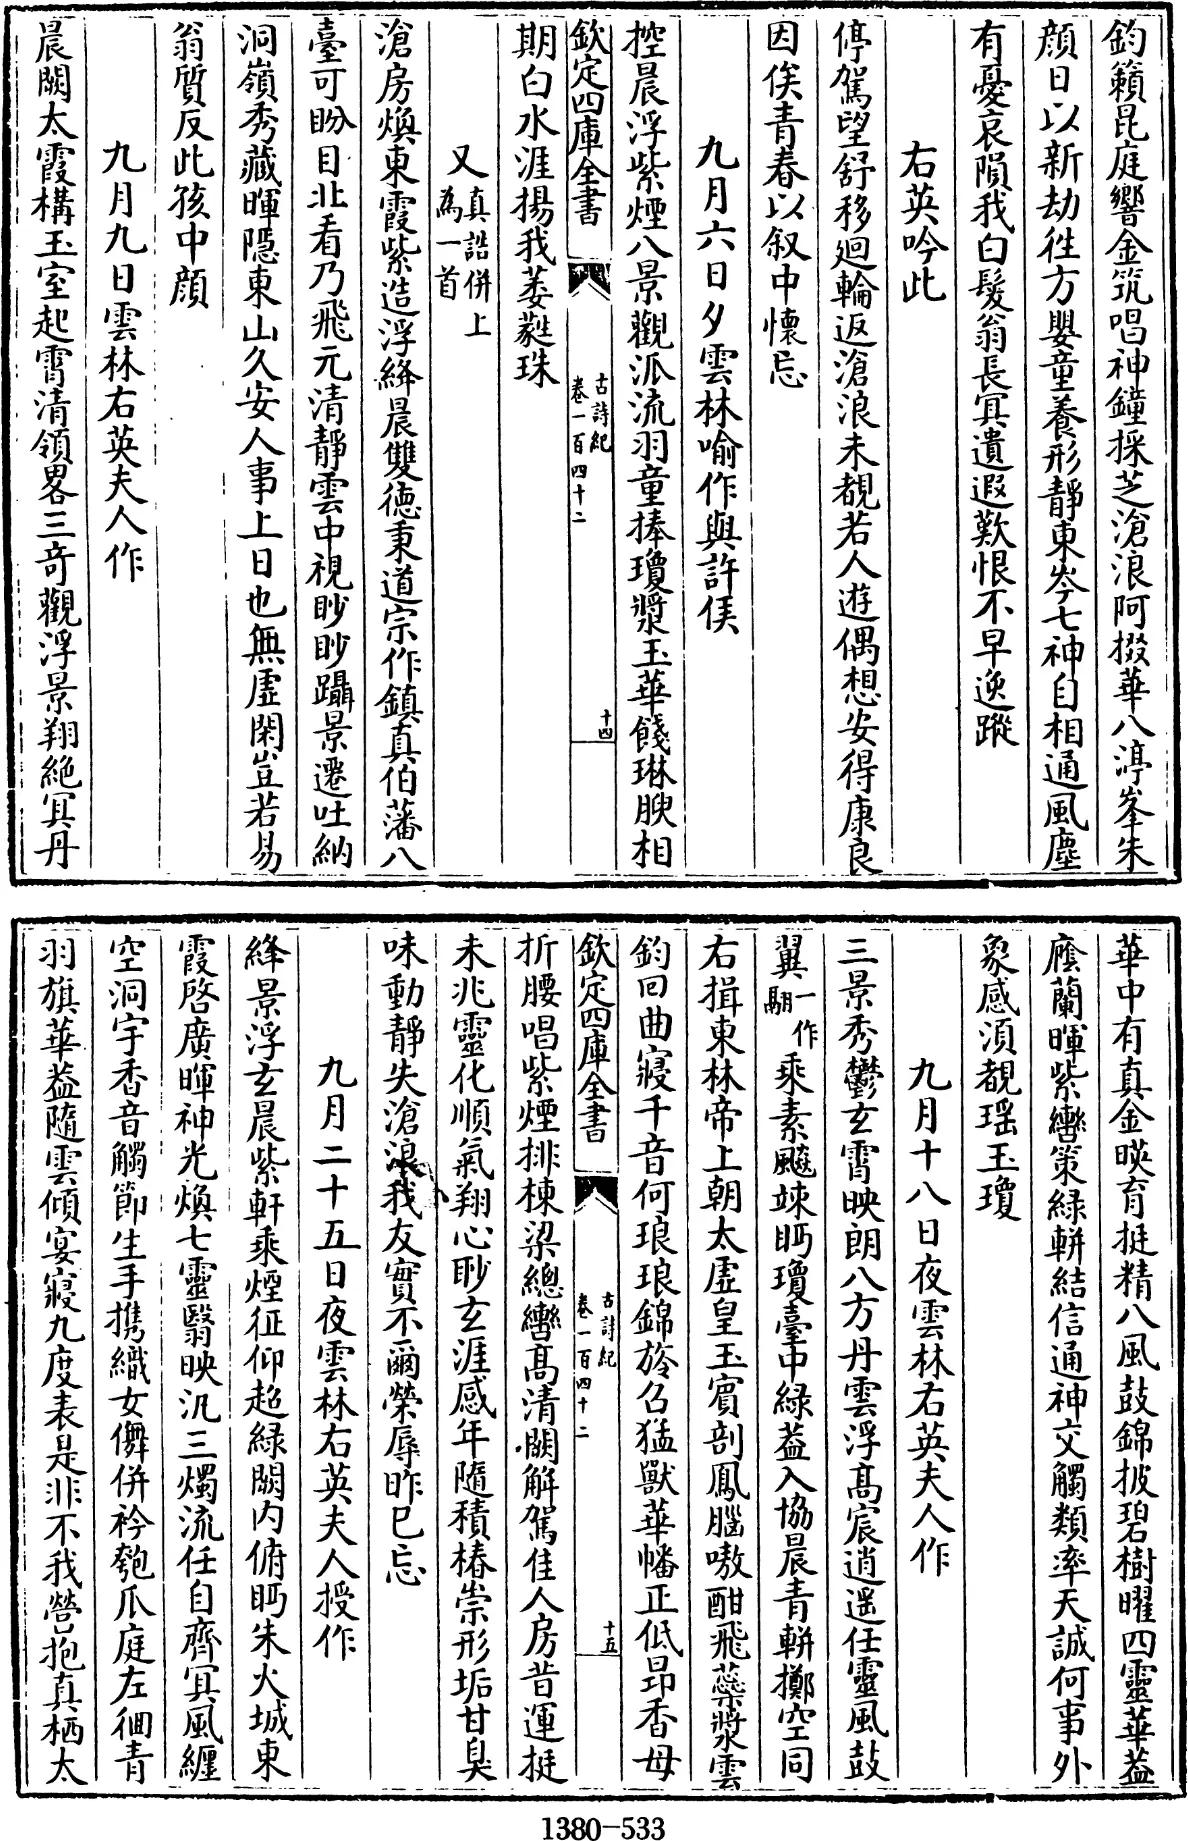 鈞籟昆庭響金筑唱神鐘採芝滄浪阿掇華八渟峯朱
顏日以新劫往方嬰童養形靜東岑七神自相通風塵
有憂哀隕我白髮翁長冥遺遐歎恨不早逸蹤
右英吟此
停駕望舒移廻輪返滄浪未覩若人遊偶想安得康良
因俟青春以叙中懷忘
九月六日夕雲林喻作與許侯
控晨浮紫煙八景觀派流羽童捧瓊漿玉華餞琳腴相
欽定四庫全書
古詩紀
卷一百四十二
十四
期白水涯揚我萎蕤珠
又真誥併上為一首
滄房煥東霞紫造浮絳晨雙德秉道宗作鎮真伯藩八
臺可盼目北看乃飛元清靜雲中視眇眇躡景遷吐納
洞嶺秀藏暉隱東山久安人事上日也無虛閑豈若易
翁質反此孩中顏
九月九日雲林右英夫人作
晨闕太霞構玉室起霄清領畧三奇觀浮景翔絶冥丹
華中有真金暎育挺精八風鼓錦披碧樹曜四靈華葢
廕蘭暉紫轡策緑軿結信通神交觸類率天誠何事外
象感須覩瑶玉瓊
九月十八日夜雲林右英夫人作
三景秀鬱玄霄映朗八方丹雲浮髙宸逍遥任靈風鼓
翼一作騆乘素飈竦眄瓊臺中緑葢入協晨青軿擲空同
右揖東林帝上朝太虛皇玉賓剖鳳腦嗷酣飛蘂漿雲
鈞回曲寢千音何琅琅錦旍召猛獸華幡正低昻香母
欽定四庫全書
古詩紀
卷一百四十二
十五
折腰唱紫煙排棟梁總轡髙清闕解駕佳人房昔運挺
未兆靈化順氣翔心眇玄涯感年隨積椿崇形垢甘臭
味動靜失滄浪我友實不爾榮辱昨已忘
九月二十五日夜雲林右英夫人授作
絳景浮玄晨紫軒乘煙征仰超緑闕内俯眄朱火城東
霞啓廣暉神光煥七靈翳映汎三燭流任自齊冥風纒
空洞宇香音觸節生手攜織女儛併衿匏瓜庭左徊青
羽旗華葢隨雲傾宴寢九度表是非不我營抱真栖太
1380-533